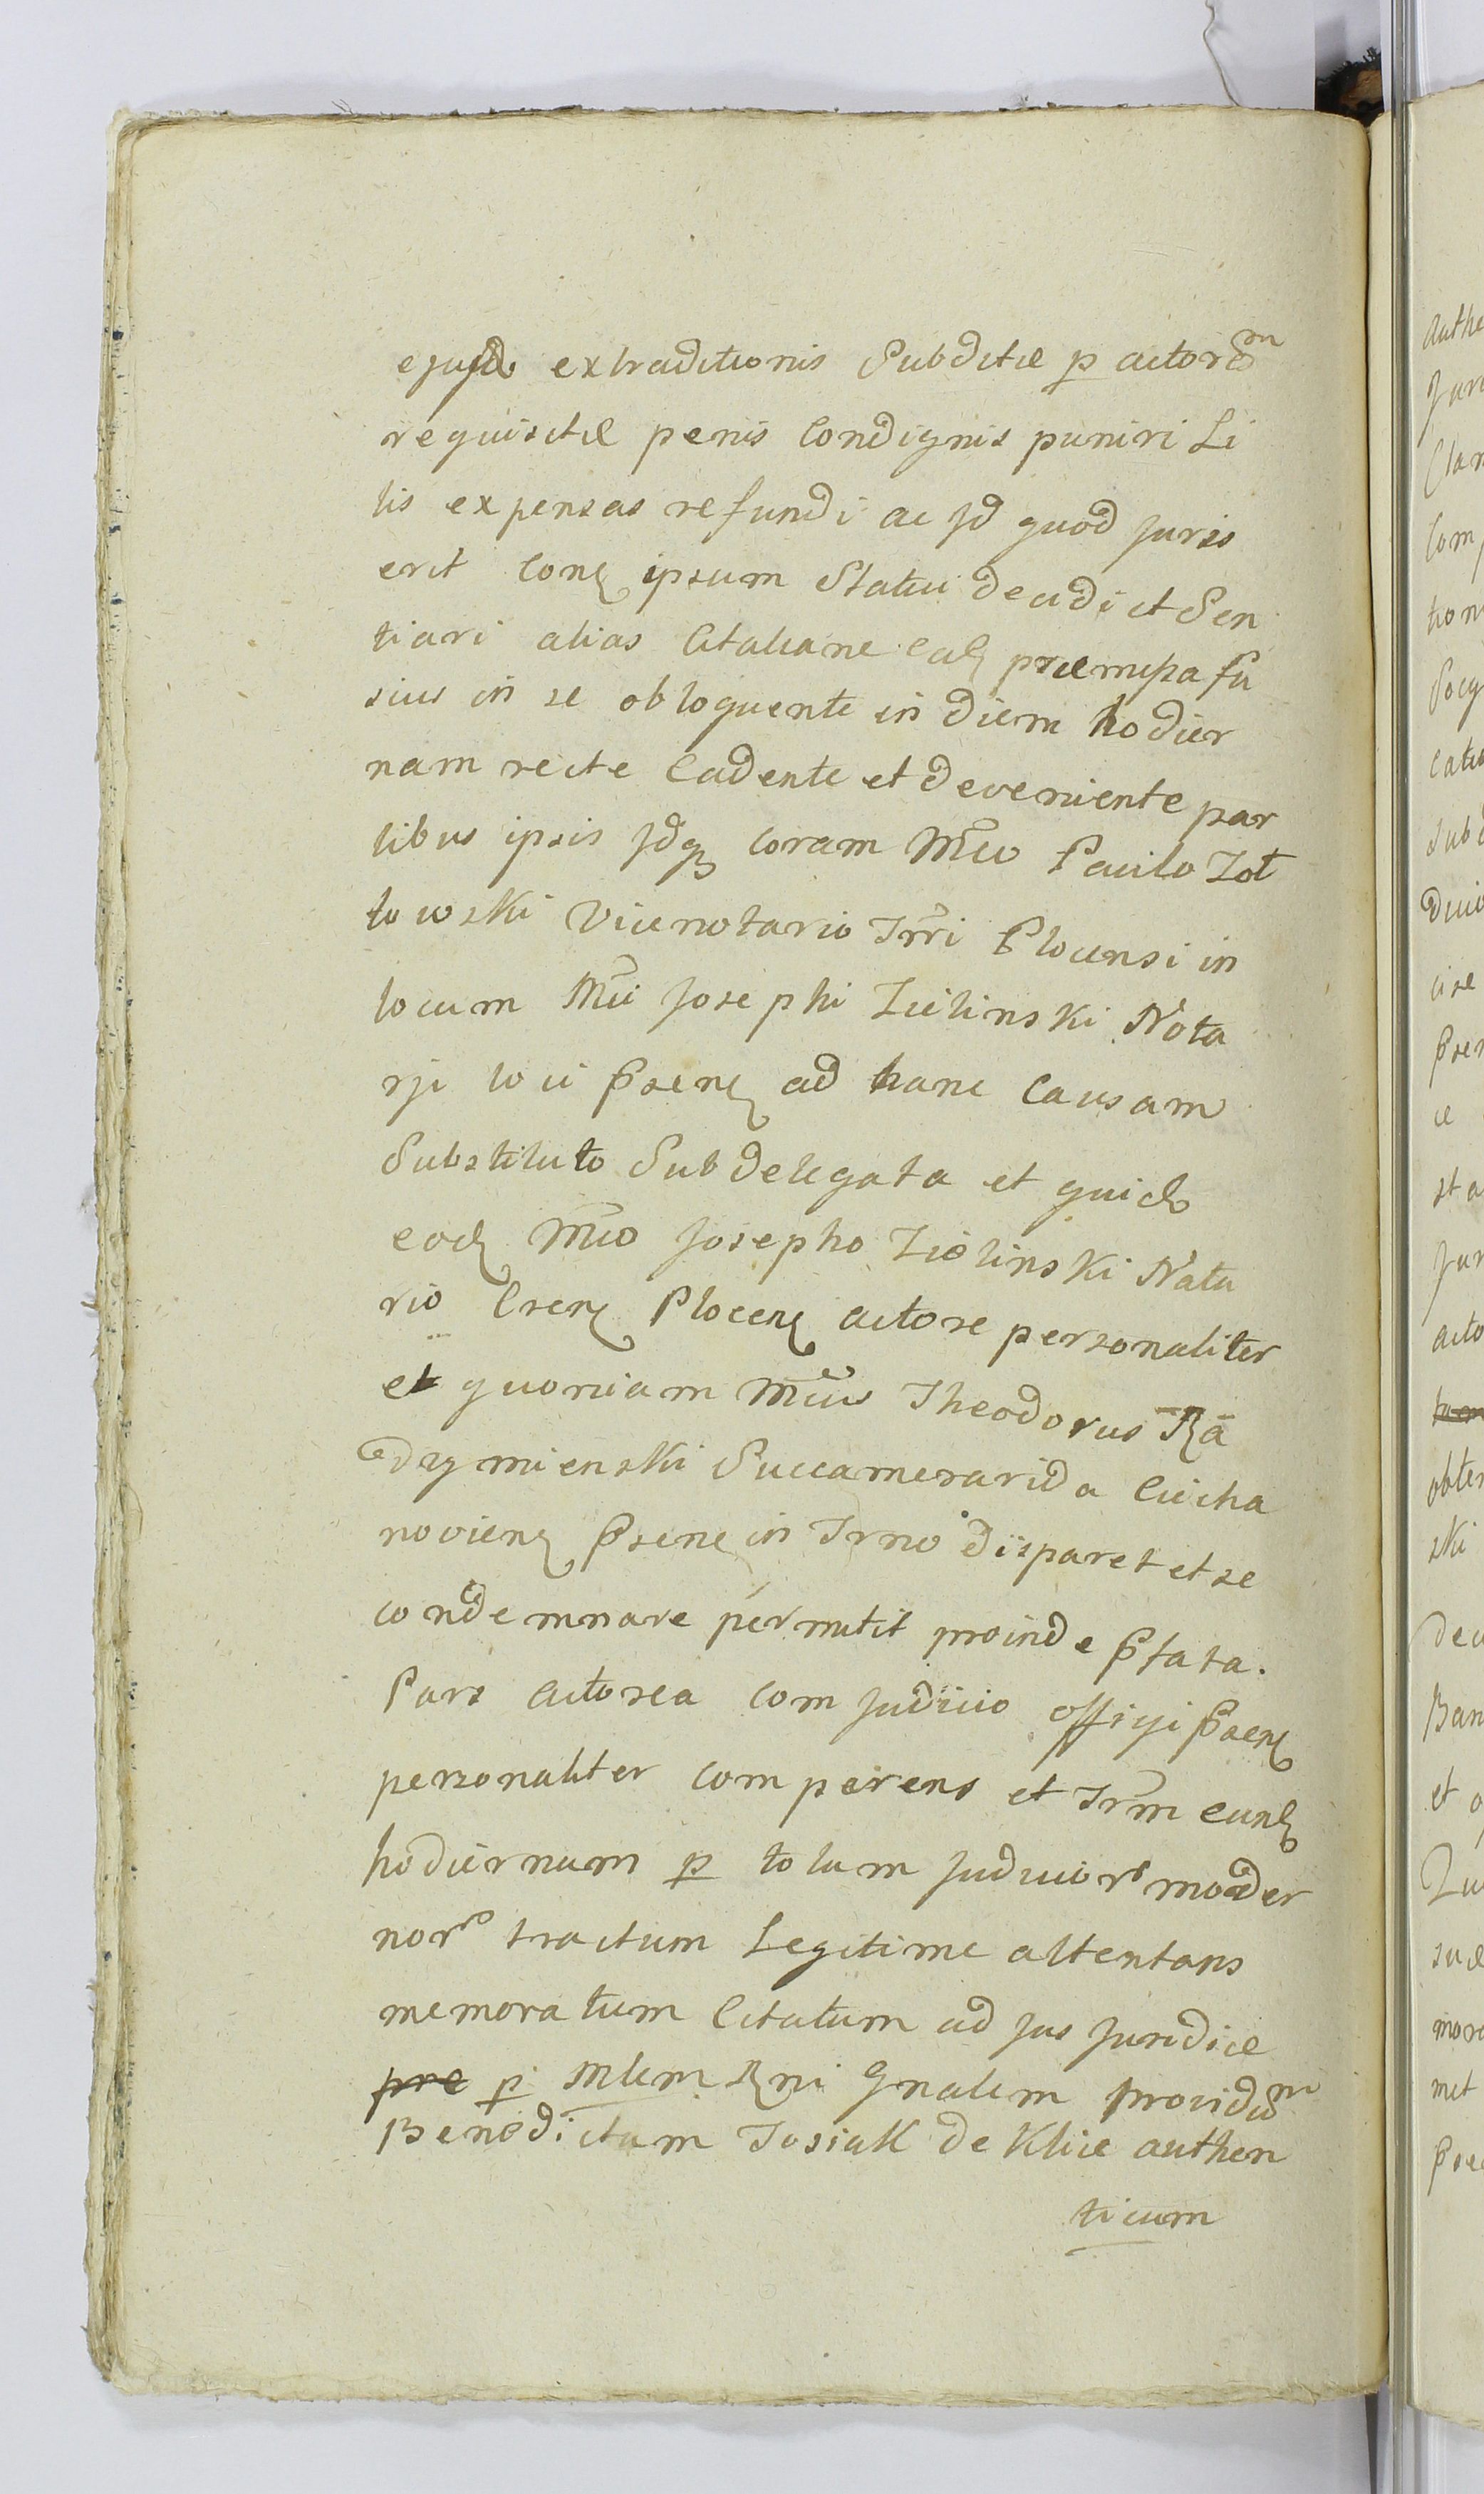 ejusd extraditionis Subditæ p actorem
requisitæ penis Condignis puniri Li
tis expensas refundi ac Jd quod Juris
erit Conq ipsum Statui decidi et Sen
tiari alias Citatiane Eadq præmissa fu
sius in se obloquente in diem hodier
nam recte Cadente et deveniente par
tibus ipsis Jdq coram Mco Paulo Zoł
towski Vicenotario Trri Plocensi in
locum Mci Josephi Zielinski Nota
rji loci Psenq ad hanc Causam
Substituto Subdelegata et quid
eodq Mco Josepho Zielinski Nata
rio Crenq Plocenq actore personaliter
et quoniam Mcus Theodorus Ra
dzymienski Succamerarida Ciecha
novienq Psenq in Trno disparet et se
condemnare permitit proinde Pfata.
Pars actorea com Judicio officji Psenq
personaliter comperens et Trm eundq
hodiernum p totum Judicior moder
nor tractum Legitime attentans
memoratum Citatum ad Jus Juridice
pre p Mlem Rni Gnalem providum
Benedictum Josiak de Klice authen
ticum